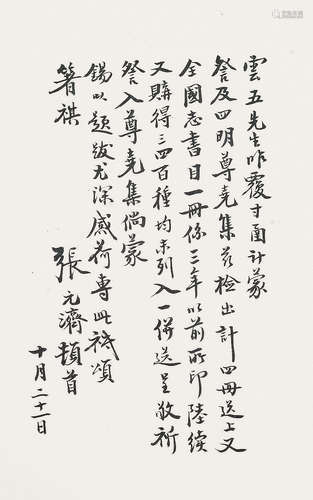 雲五先生昨覆寸函計蒙
詧及四明尊堯集茲檢出計四冊送上又
全國志書目一冊係三年以前所印陸續
又購得三四百種均未列入一併送呈敬祈
詧入尊堯集倘蒙
錫以題跋尤深感荷專此祗頌
箸祺
張元濟頓首
十月二十一日